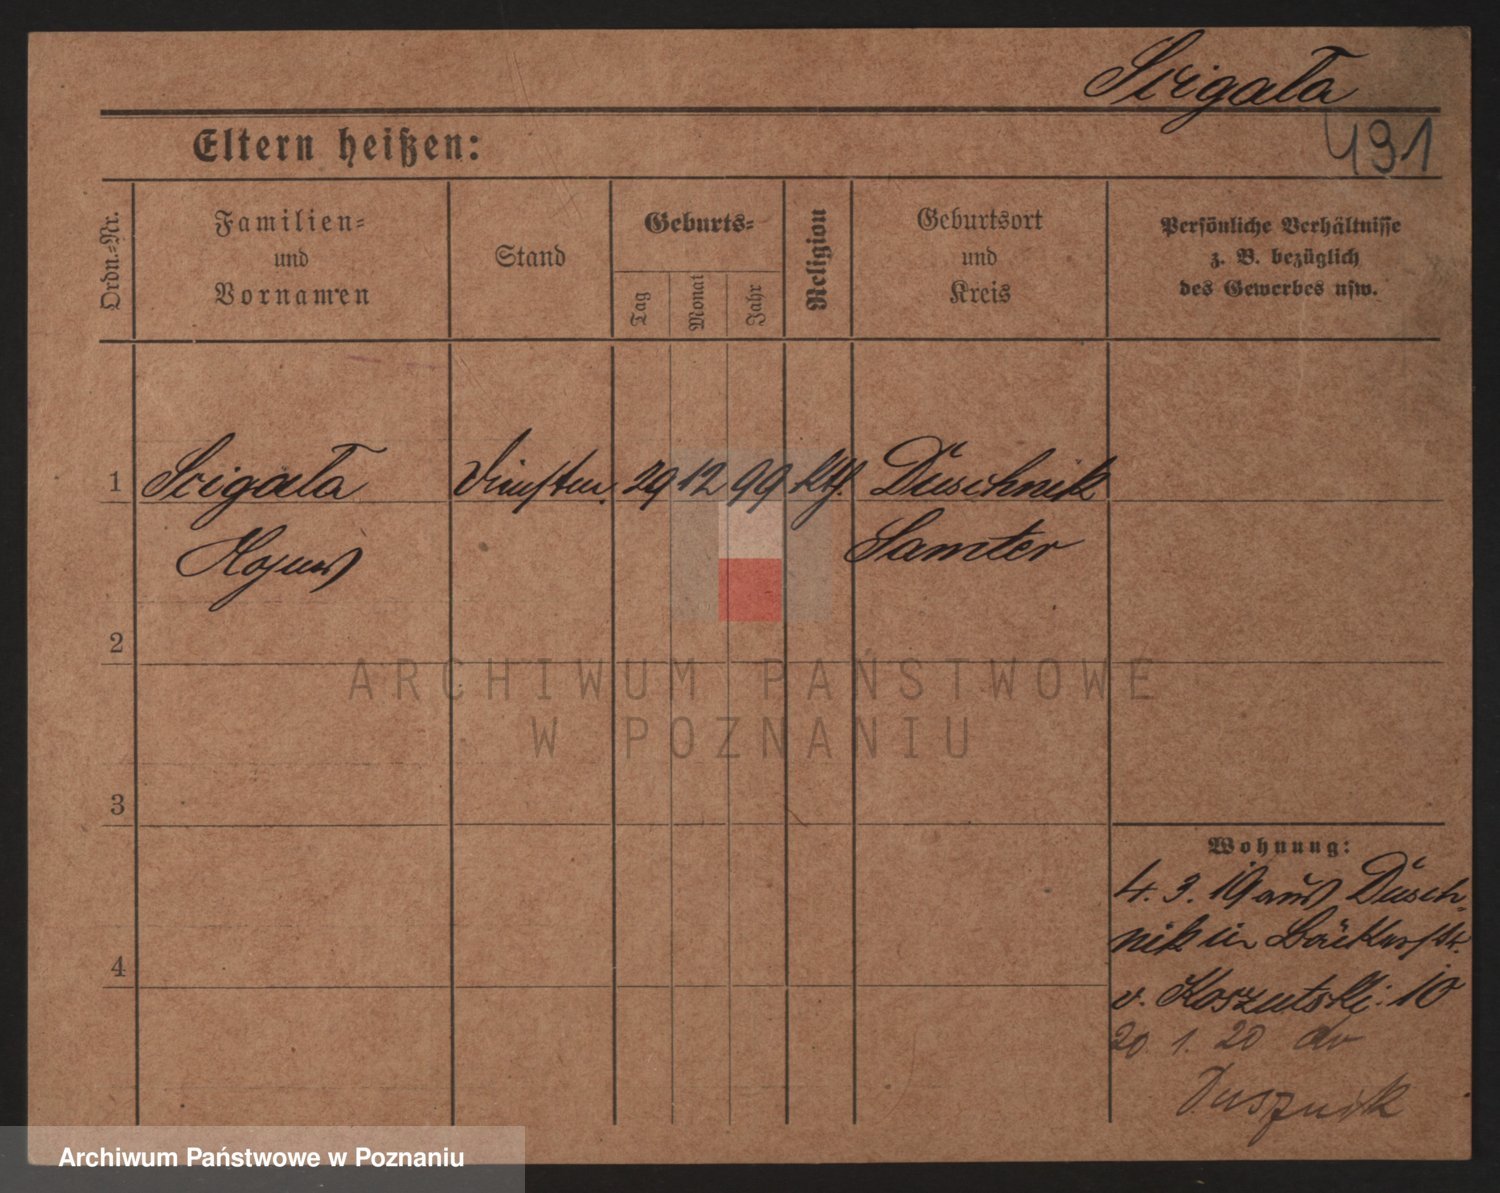 Scigała
491
Eltern heißen:
Ordn.-Nr.
Familien-
und
Vornamen
Stand
Geburts-
Tag
Monat
Jahr
Religion
Geburtsort
und
Kreis
Persönliche Verhältnisse
z. B. bezüglich
des Gewerbes usw.
1 Scigała 29 12 99 kth. Duschnik
Samter
2
3
4
Wohnung:
4. 3. 19 aus Dusch-
nik in Bäckerstr.
v. Koszutski 10
20. 1. 20 do
Dusznik
ARCHIWUM PAŃSTWOWE
W POZNANIU
Archiwum Państwowe w Poznaniu